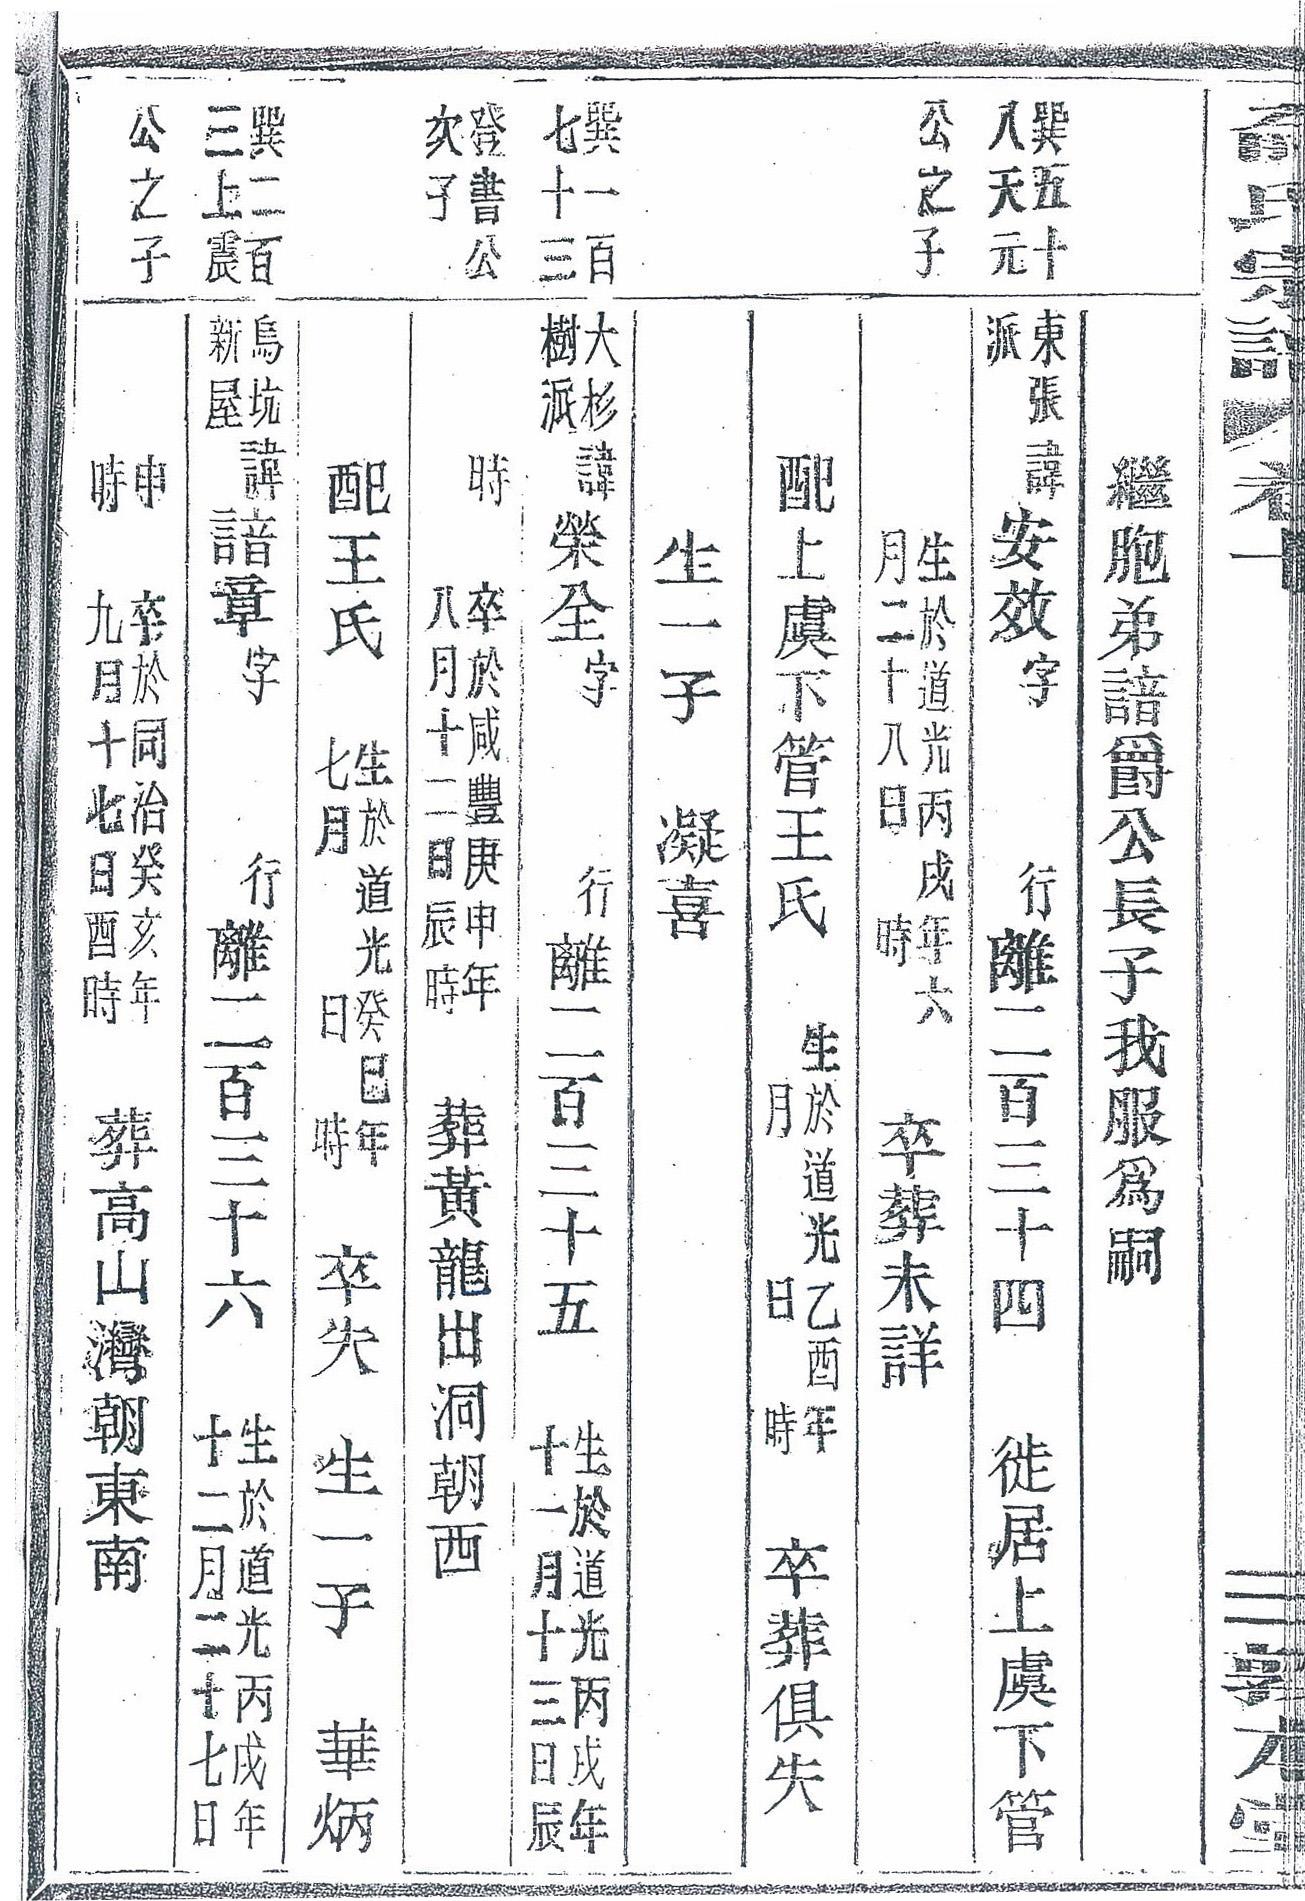 氏宗譜 卷十
三 敦本堂
繼胞弟諳爵公長子我服爲嗣
巽五十
八天元
東張
派
諱安效字 行離二百三十四 徙居上虞下管
公之子
生於道光丙戌年六
月二十八日 時
卒葬未詳
配上虞下管王氏 生於道光乙酉年
月 日 時
卒葬俱失
生一子 凝喜
巽一百
七十三
大杉
樹派
諱榮全字 行離二百三十五 生於道光丙戌年
十一月十三日辰
登書公
次子
時 卒於咸豐庚申年
八月十二日辰時
葬黃龍出洞朝西
配王氏 生於道光癸巳年
七月 日 時
卒失 生一子 華炳
巽二百
三上震
烏坑
新屋
諱諳章字 行離二百三十六 生於道光丙戌年
十二月二十七日
公之子
申
時
卒於同治癸亥年
九月十七日酉時
葬高山灣朝東南